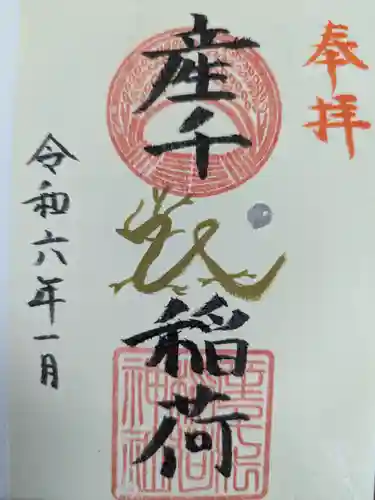 奉拝
産千代稲荷
令和六年一月